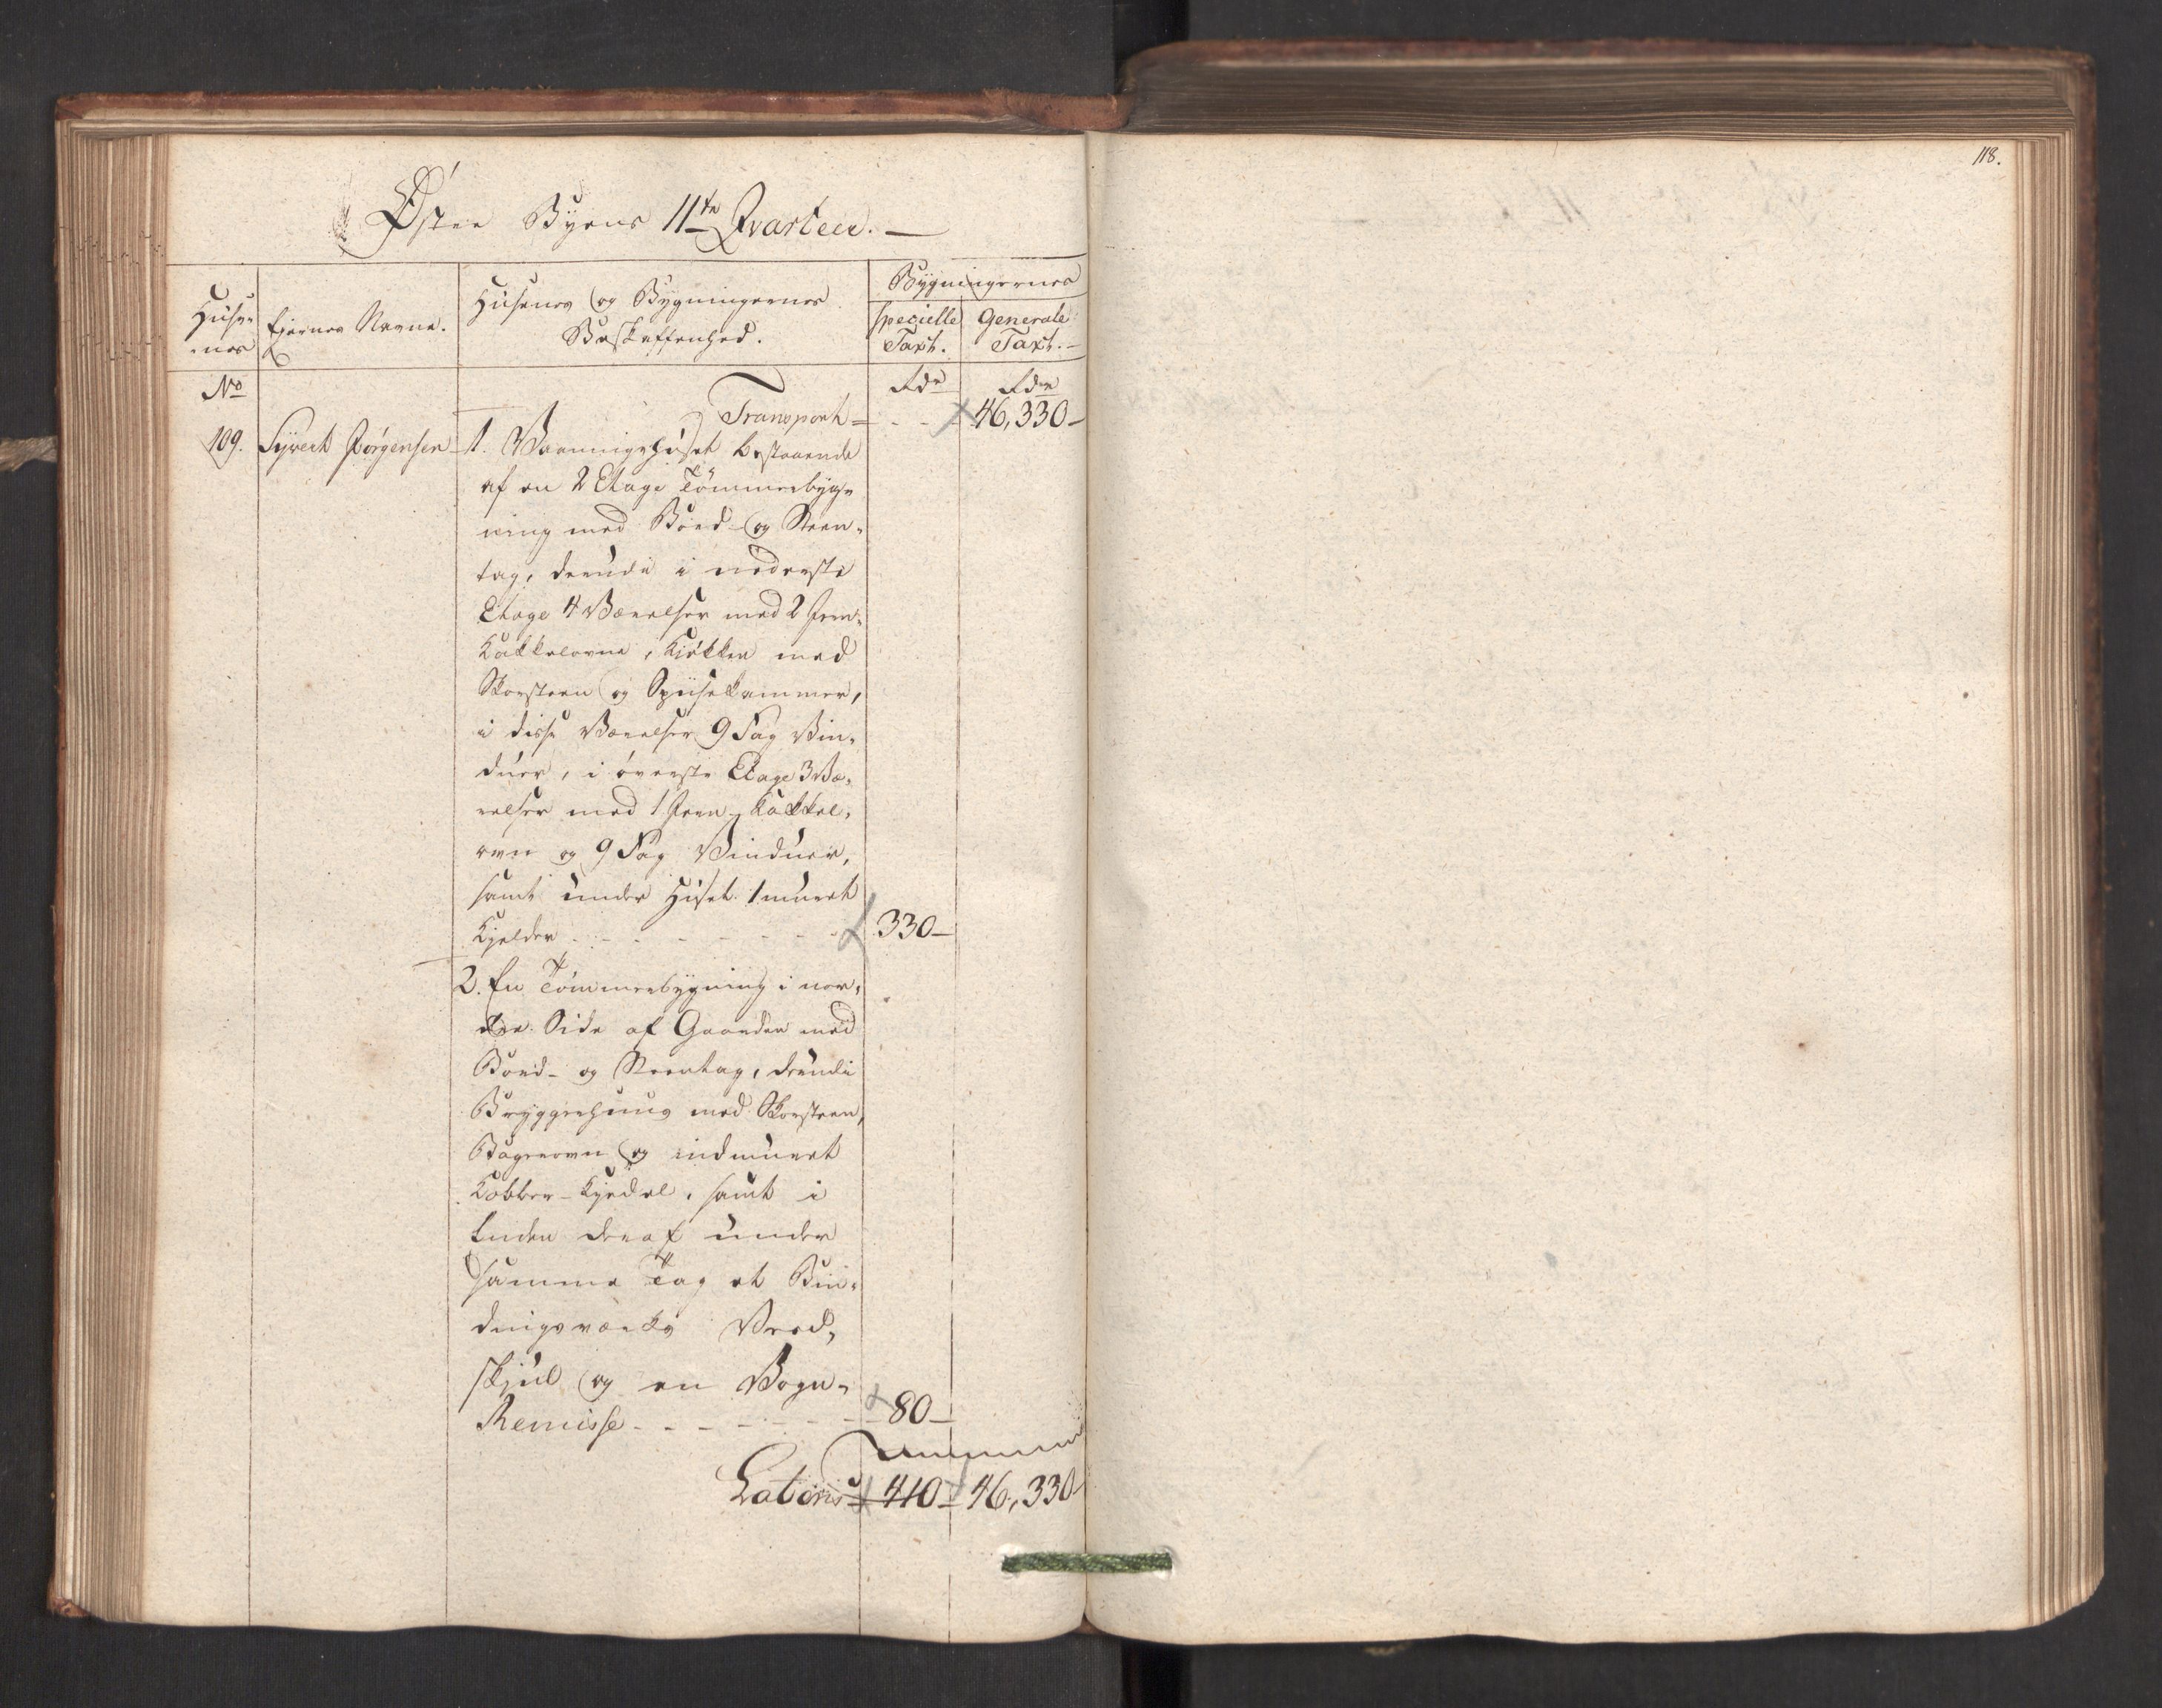 118.
Øster Byens 11te Qvarteer. —
Huse-
nes
Ejernes Navne.
Husenes og Bygningernes
Beskaffenhed.
Bygningernes
specielle
Taxt.
Generale
Taxt. —
No
Rdr
Rdr
Transport = - - - 46,330 —
109. Syvert Jørgensen — 1. Vaaningshuset bestaaende
af en 2 Etage Tømmerbyg-
ning med Bord- og Steen-
tag, derudi i nederste
Etage 4 Værelser med 2 Jern-
Kakkelovne, Kiøkken med
Skorsteen og Spiisekammer,
i disse Værelser 9 Fag Vin-
duer, i øverste Etage 3 Væ-
relser med 1 Jern-Kakkel-
ovn og 9 Fag Vinduer,
samt under Huset 1 muret
Kjelder - - - - - - 330 —
2. En Tømmerbygning i nor-
dre Side af Gaarden med
Bord- og Steentag, derudi
Bryggerhuus med Skorsteen,
Bagerovn og indmuret
Kobber-Kjedel, samt i
Enden deraf under
samme Tag et Bin-
dingsværks Veed-
skjul og en Vogn-
Remisse - - - - - - 80 —
Lateris 410 — 46,330